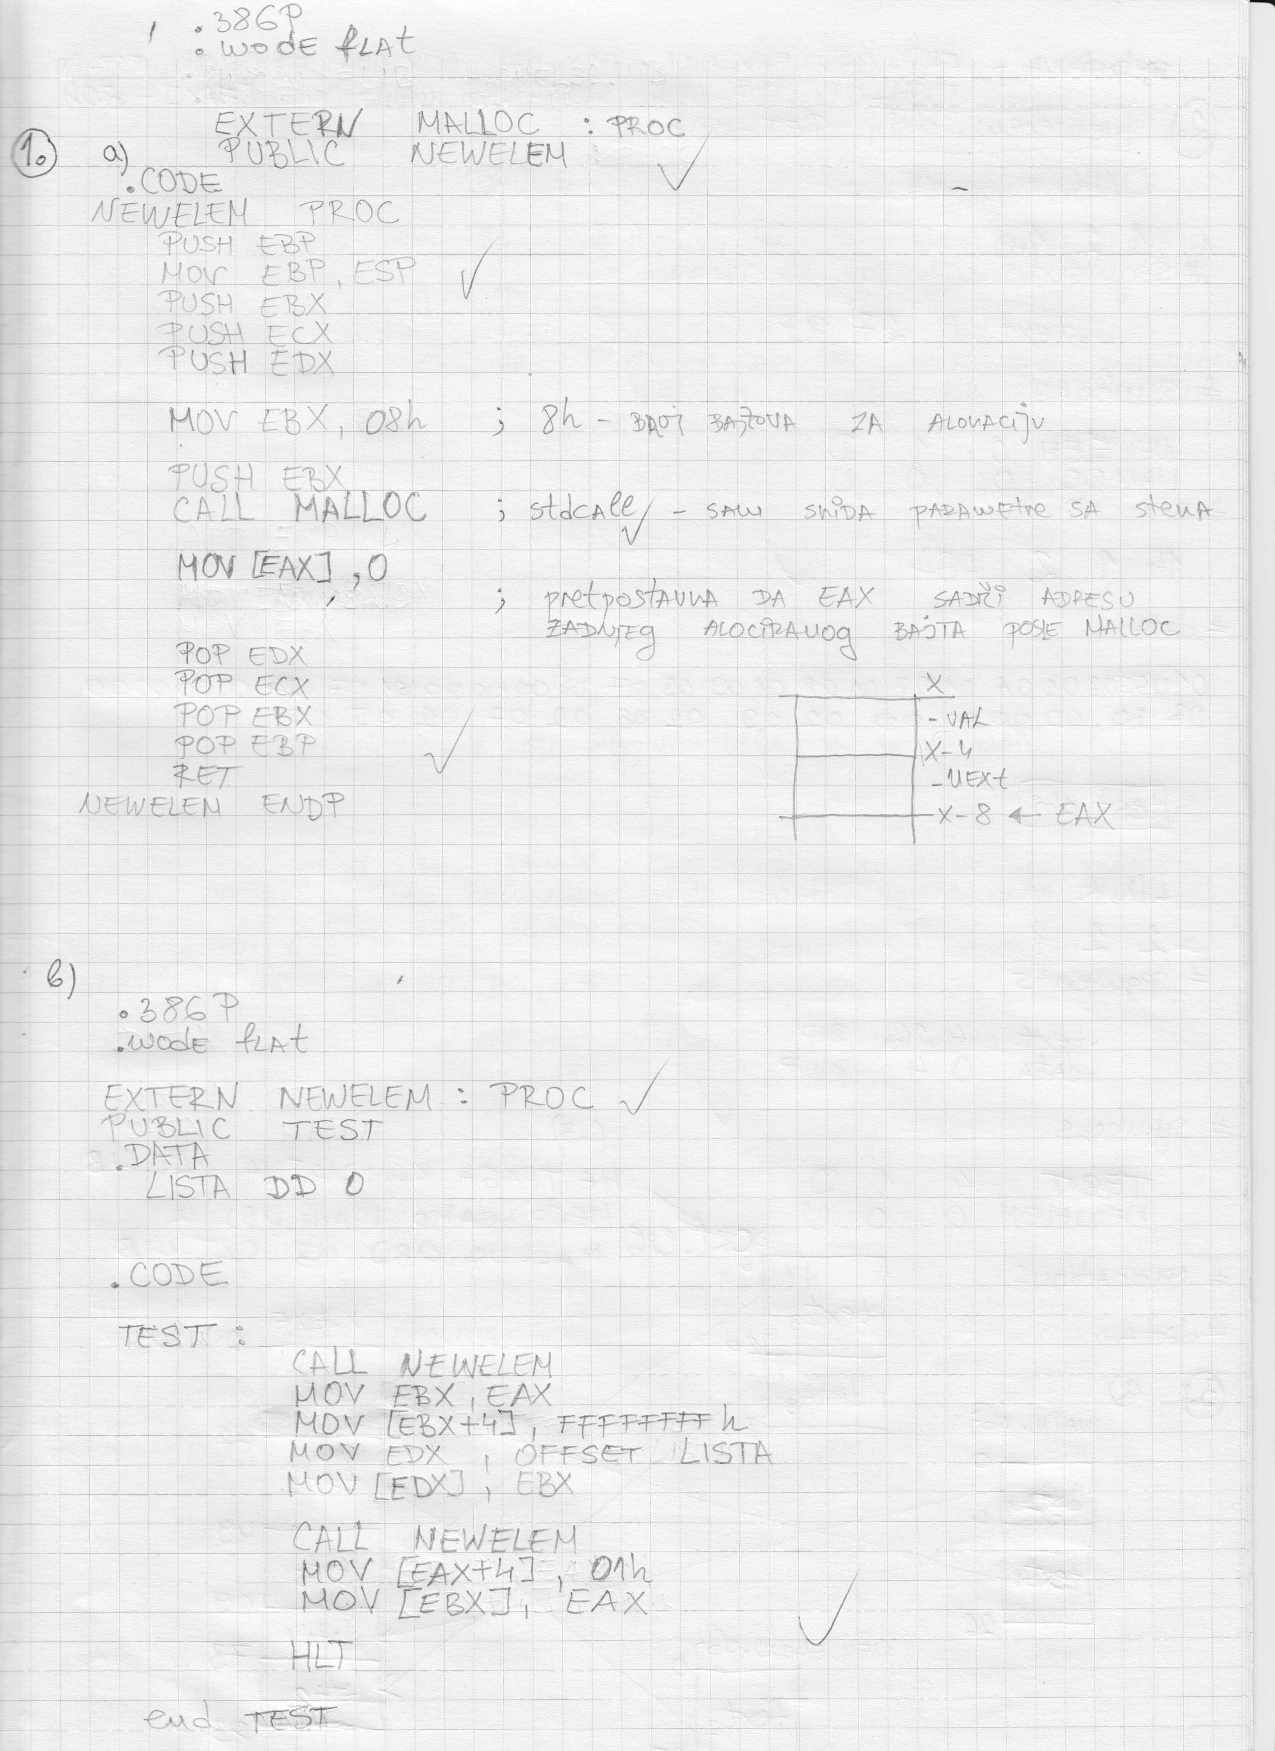 .386P
.mode flat
EXTERN MALLOC : PROC
1. a) PUBLIC NEWELEM
.CODE
NEWELEM PROC
PUSH EBP
MOV EBP, ESP
PUSH EBX
PUSH ECX
PUSH EDX
MOV EBX, 08h ; 8h - BROJ BAJTOVA ZA ALOKACIJU
PUSH EBX
CALL MALLOC ; stdcall - SAM SKIDA PARAMETRE SA STEKA
MOV [EAX], 0
; PRETPOSTAVKA DA EAX SADRŽI ADRESU
ZADNJEG ALOCIRANOG BAJTA POSLE MALLOC
POP EDX
POP ECX
POP EBX
POP EBP
RET
NEWELEM ENDP
X
- VAL
X-4
- NEXT
X-8 ← EAX
b)
.386P
.mode flat
EXTERN NEWELEM : PROC
PUBLIC TEST
.DATA
LISTA DD 0
.CODE
TEST :
CALL NEWELEM
MOV EBX, EAX
MOV [EBX+4], FFFFFFFFh
MOV EDX, OFFSET LISTA
MOV [EDX], EBX
CALL NEWELEM
MOV [EAX+4], 01h
MOV [EBX], EAX
HLT
end TEST